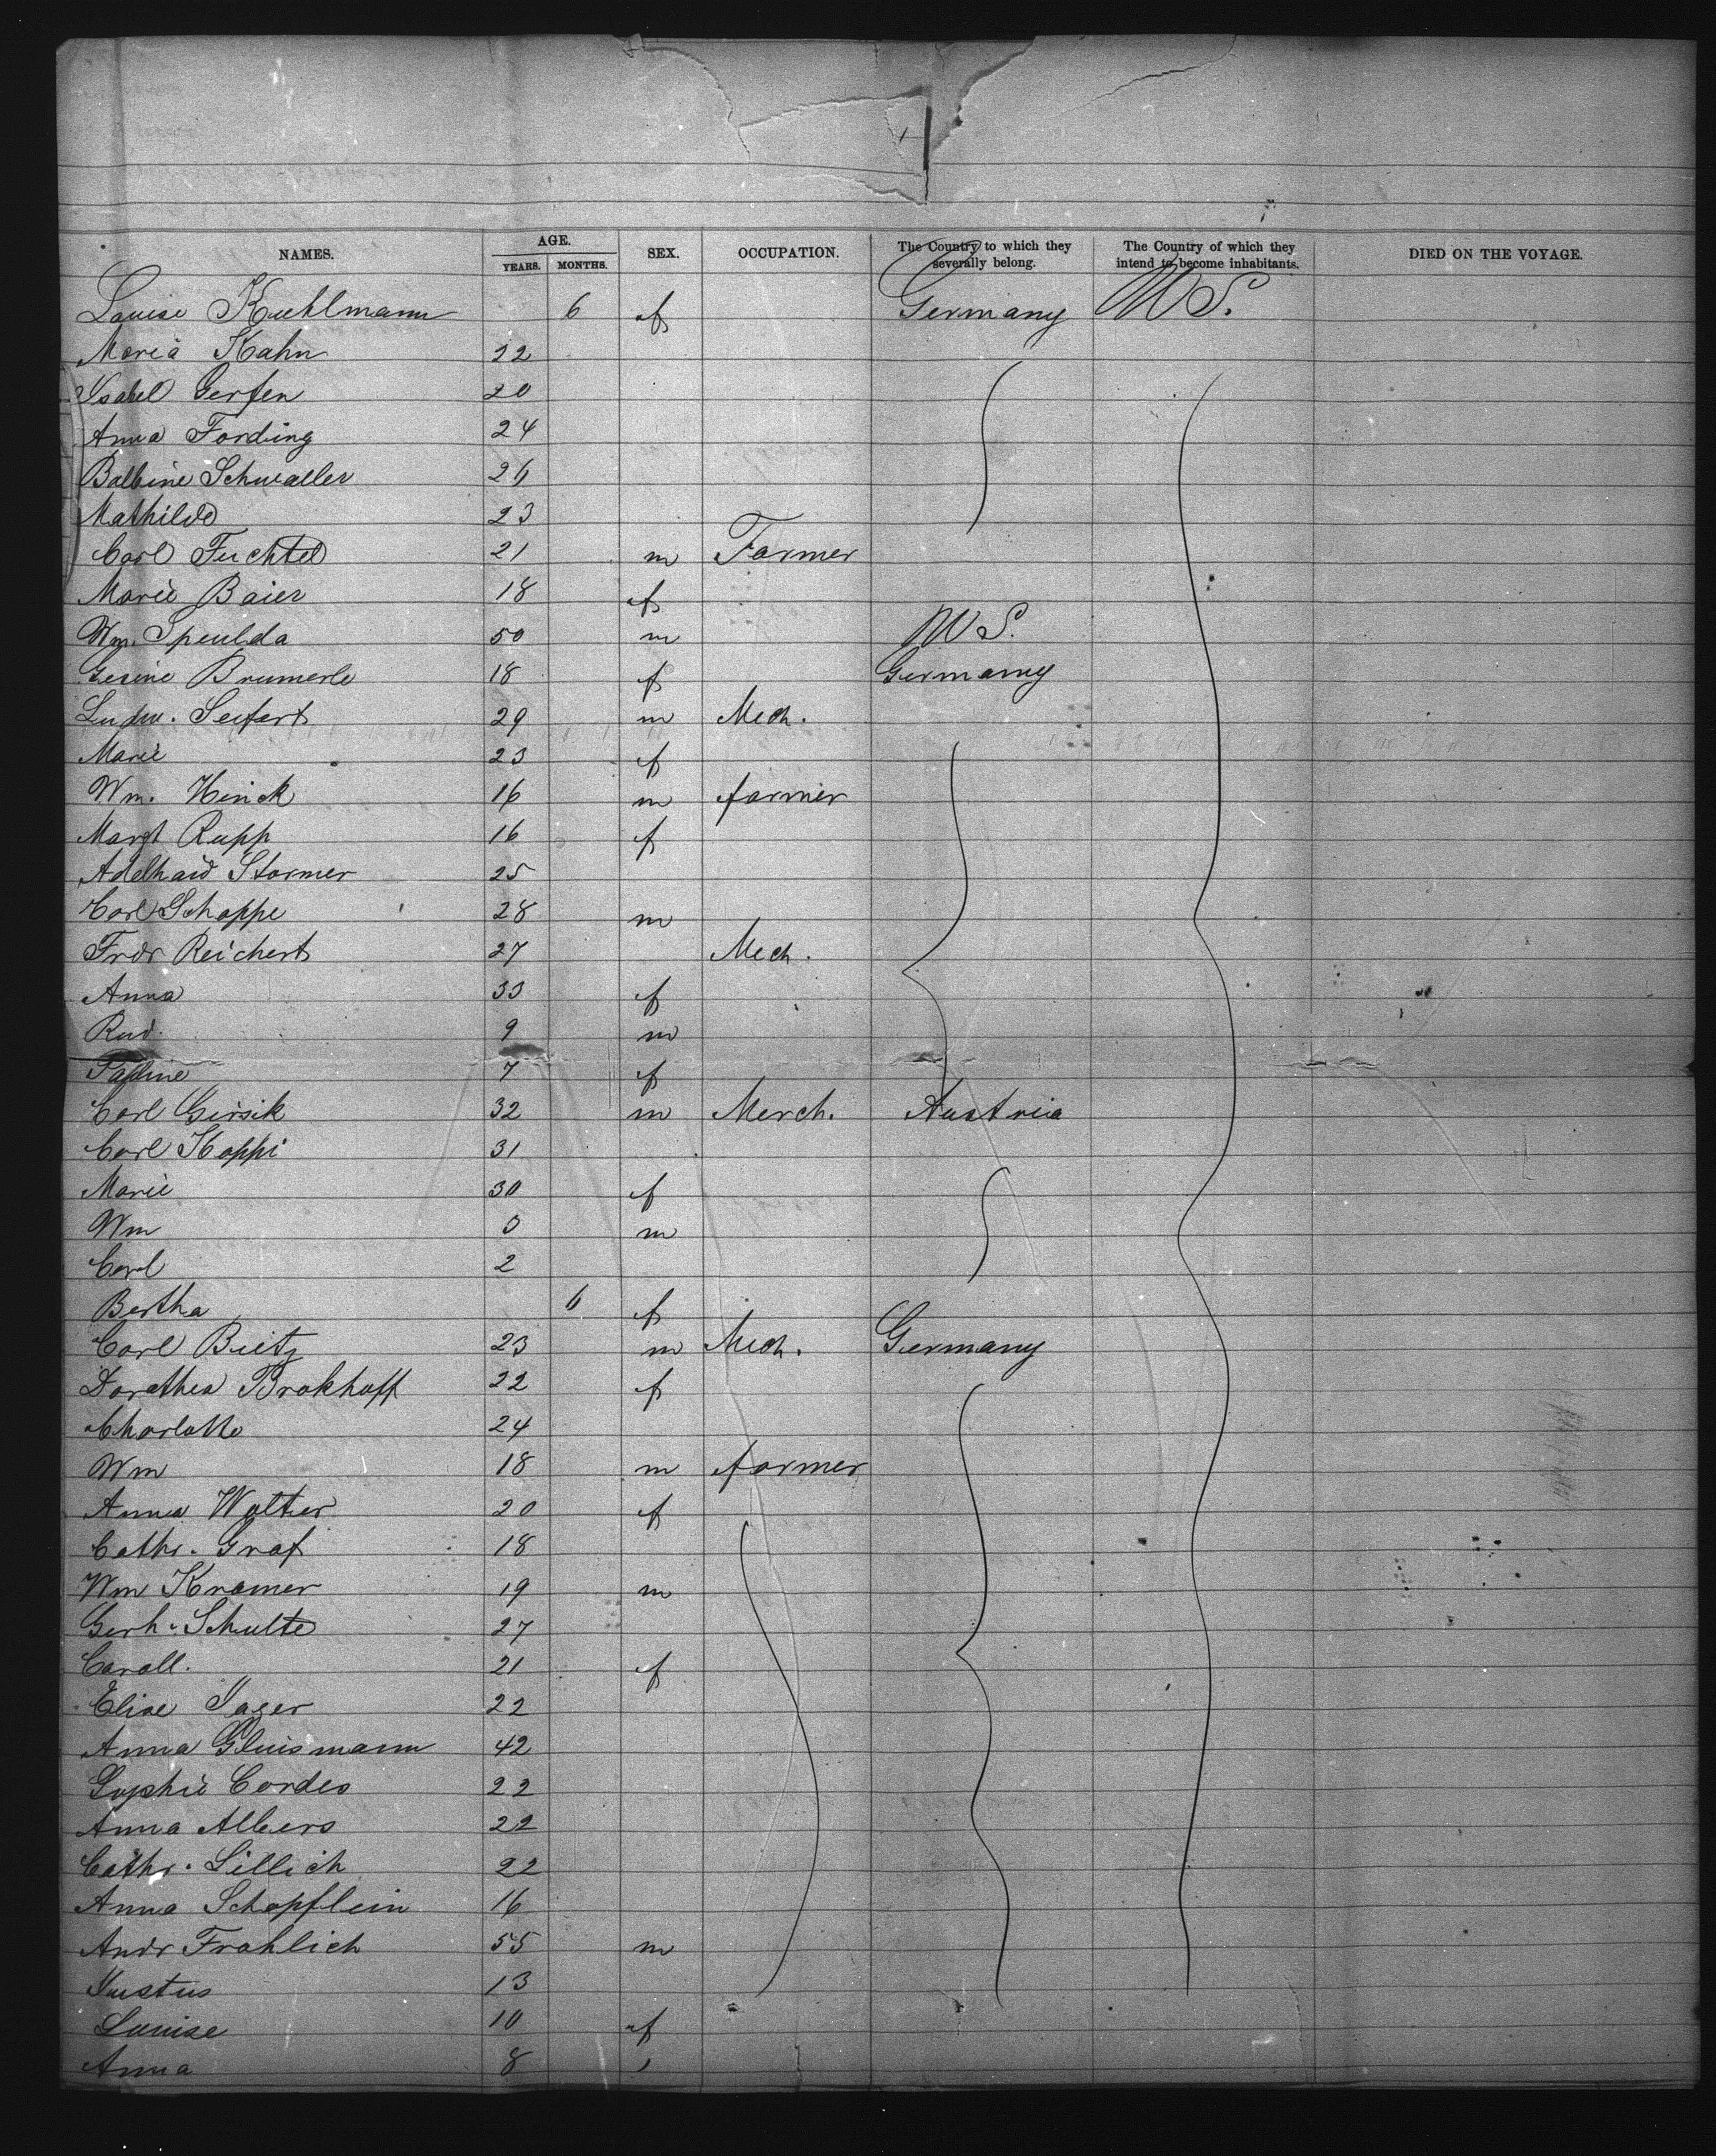 NAMES. AGE. SEX. OCCUPATION. The Country to which they severally belong. The Country of which they intend to become inhabitants. DIED ON THE VOYAGE.
YEARS. MONTHS.
Louise Kuehlmann 6 f Germany US.
Maria Kahn 22
Isabel Gerfen 20
Anna Fording 24
Balbine Schwaller 26
Mathilde 23
Carl Fuchtel 21 m Farmer
Marie Baier 18 f
Wm. Speulda 50 m US.
Gesine Brumerle 18 f Germany
Ludw. Seifert 29 m Mech.
Marie 23 f
Wm. Hinck 16 m farmer
Margt Rupp 16 f
Adelhaid Stormer 25
Carl Schoppe 28 m
Frdr Reichert 27 Mech.
Anna 33 f
Rud. 9 m
7 f
Carl Girsik 32 m Merch. Austria
Carl Koppi 31
Marie 30 f
Wm 3 m
Carl 2
Bertha 6 f
Carl Bietz 23 m Mech. Germany
Dorathea Brokhoff 22 f
Charlotte 24
Wm 18 m farmer
Anna Wolter 20 f
Cathr. Graf 18
Wm Kramer 19 m
Gerh. Schulte 27
Caroll. 21 f
Elise Jager 22
Anna Gluismann 42
Sophie Cordes 22
Anna Albers 22
Cathr. Lillich 22
Anna Schopflein 16
Andr Frohlich 55 m
Justus 13
Louise 10 f
Anna 8